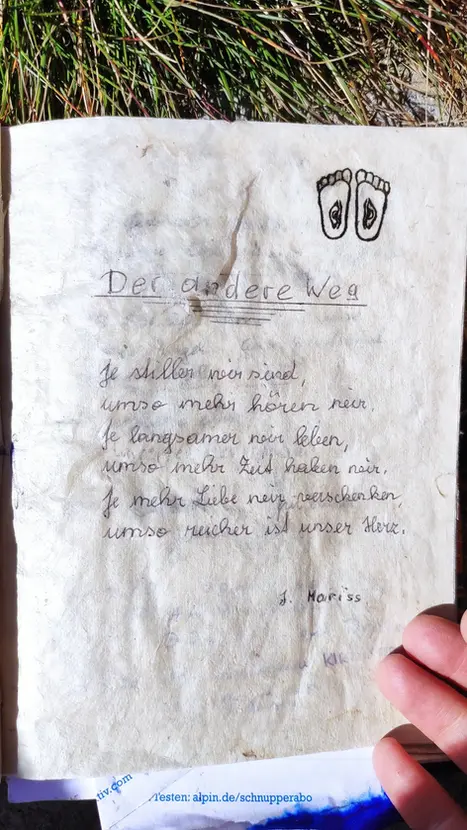 Der andere Weg
Je stiller wir sind,
umso mehr hören wir.
Je langsamer wir leben,
umso mehr Zeit haben wir.
Je mehr Liebe wir verschenken,
umso reicher ist unser Herz.
J. Mariss
Testen: alpin.de/schnupperabo